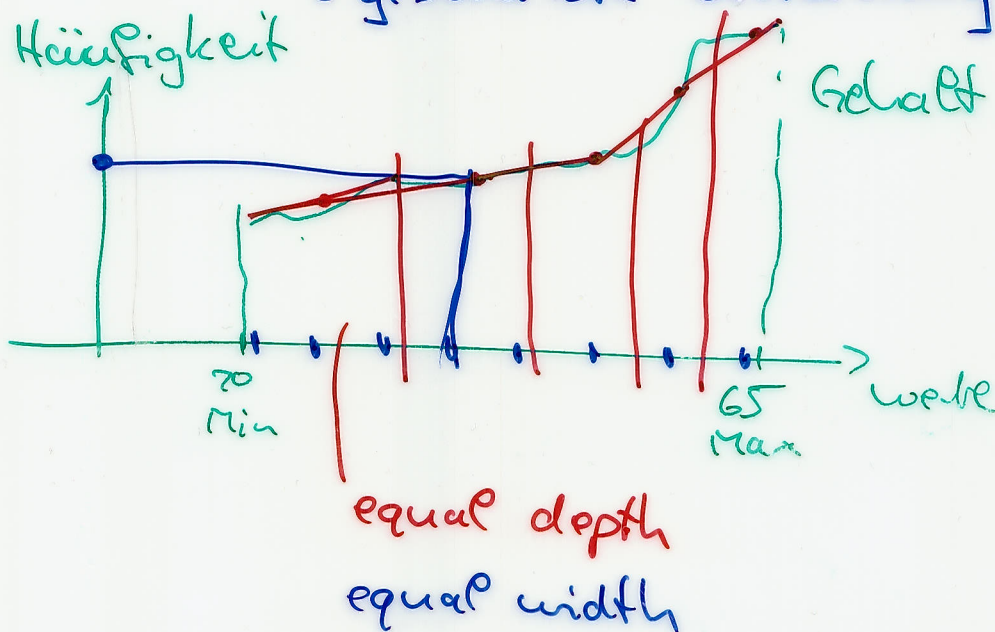 Häufigkeit
Gehalt
20
Min
65
Max
werte
equal depth
equal width